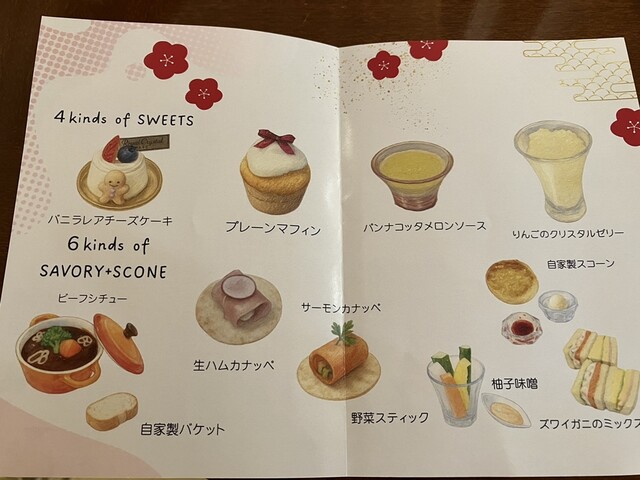 4 kinds of SWEETS
バニラレアチーズケーキ
プレーンマフィン
パンナコッタメロンソース
りんごのクリスタルゼリー
6 kinds of
SAVORY+SCONE
ビーフシチュー
自家製バケット
生ハムカナッペ
サーモンカナッペ
野菜スティック
柚子味噌
自家製スコーン
ズワイガニのミックス